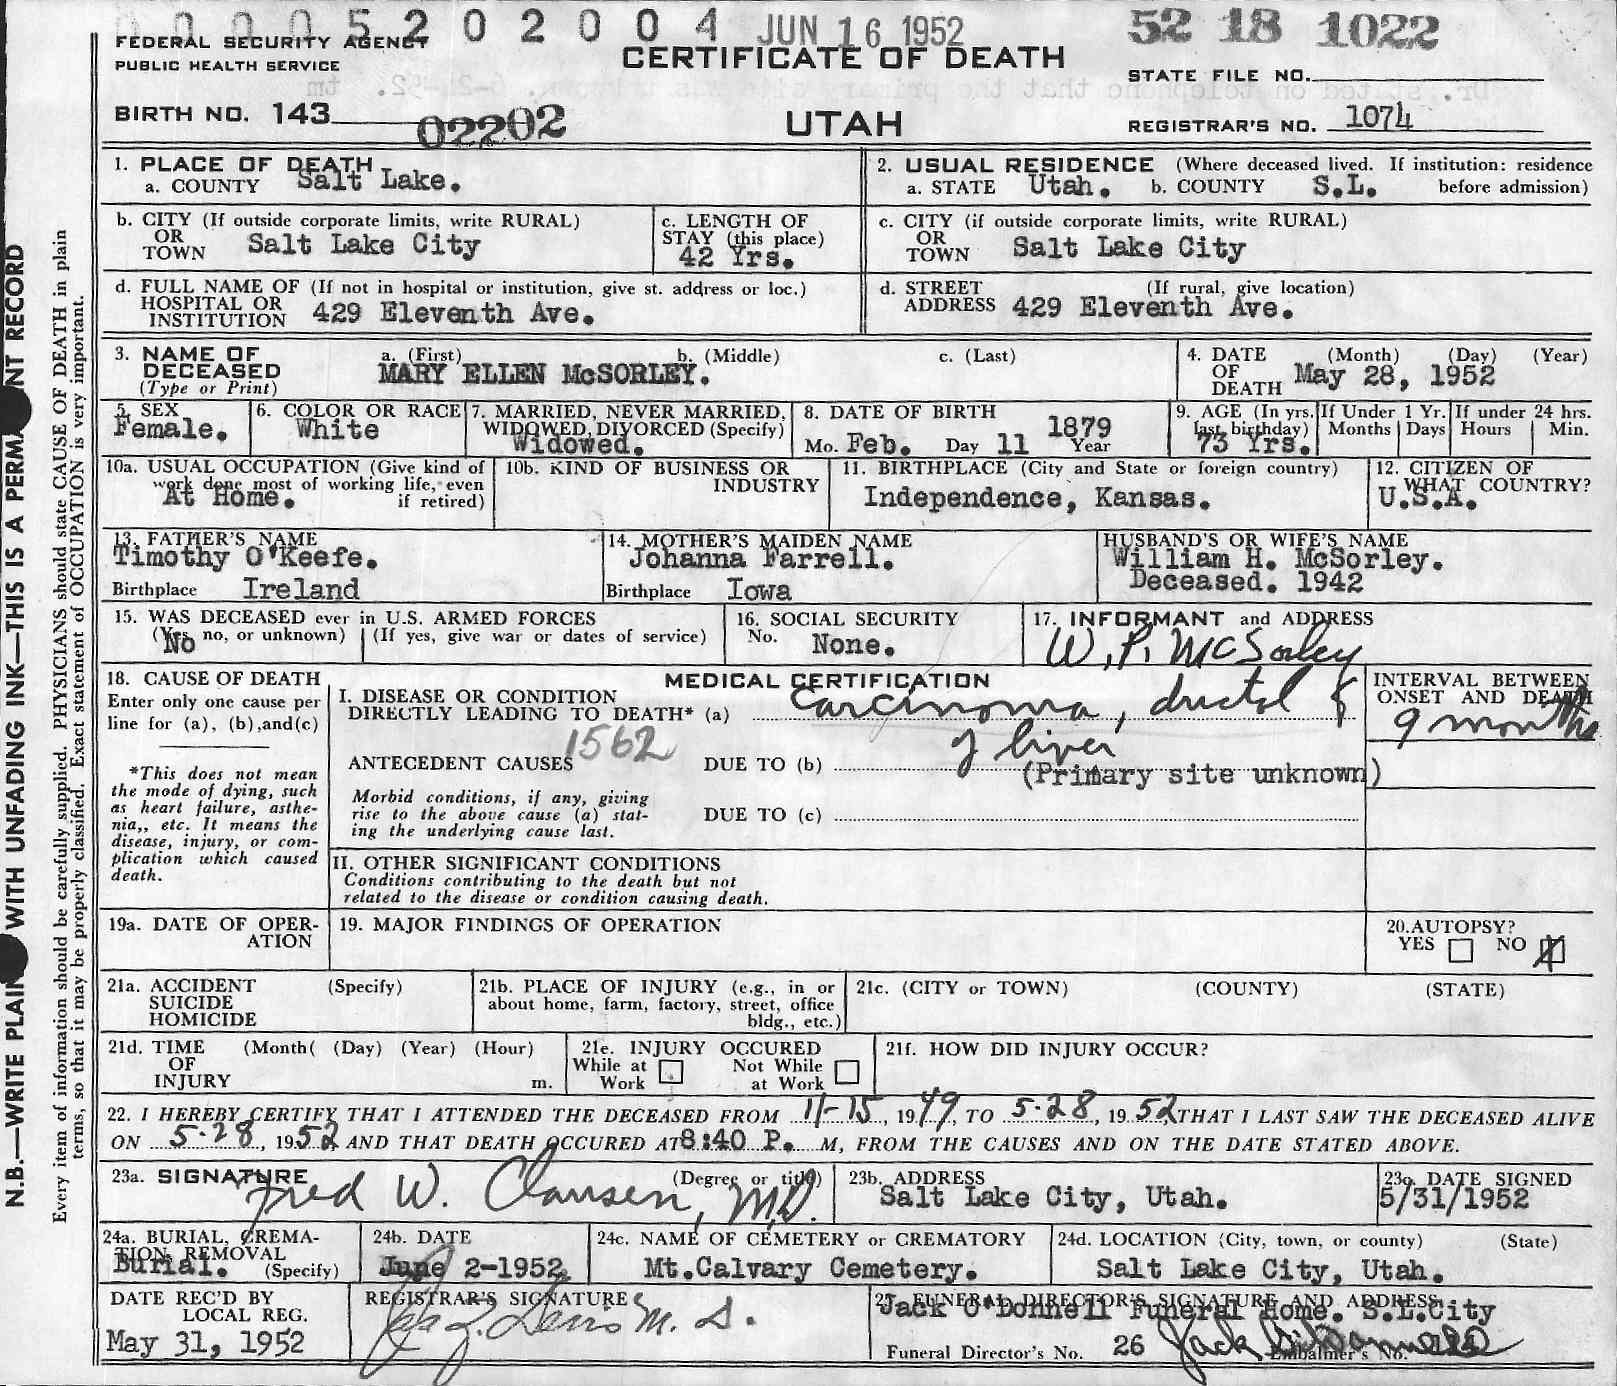 0 0 0 5 2 0 2 0 0 4 JUN 16 1952 52 18 1022
FEDERAL SECURITY AGENCY
PUBLIC HEALTH SERVICE
CERTIFICATE OF DEATH
STATE FILE NO.
Dr. stated on telephone that the primary site was unknown. 6-24-52. tm
BIRTH NO. 143 02202
UTAH
REGISTRAR'S NO. 1074
1. PLACE OF DEATH
a. COUNTY Salt Lake.
2. USUAL RESIDENCE (Where deceased lived. If institution: residence
a. STATE Utah. b. COUNTY S.L. before admission)
b. CITY (If outside corporate limits, write RURAL)
OR
TOWN Salt Lake City
c. LENGTH OF
STAY (this place)
42 Yrs.
c. CITY (if outside corporate limits, write RURAL)
OR
TOWN Salt Lake City
d. FULL NAME OF (If not in hospital or institution, give st. address or loc.)
HOSPITAL OR
INSTITUTION 429 Eleventh Ave.
d. STREET (If rural, give location)
ADDRESS 429 Eleventh Ave.
3. NAME OF
DECEASED
(Type or Print)
a. (First) b. (Middle) c. (Last)
MARY ELLEN McSORLEY.
4. DATE (Month) (Day) (Year)
OF
DEATH May 28, 1952
5. SEX
Female.
6. COLOR OR RACE
White
7. MARRIED, NEVER MARRIED,
WIDOWED, DIVORCED (Specify)
Widowed.
8. DATE OF BIRTH
1879
Mo. Feb. Day 11 Year
9. AGE (In yrs.
last birthday)
73 Yrs.
If Under 1 Yr.
Months Days
If under 24 hrs.
Hours Min.
10a. USUAL OCCUPATION (Give kind of
work done most of working life, even
if retired)
At Home.
10b. KIND OF BUSINESS OR
INDUSTRY
11. BIRTHPLACE (City and State or foreign country)
Independence, Kansas.
12. CITIZEN OF
WHAT COUNTRY?
U.S.A.
13. FATHER'S NAME
Timothy O'Keefe.
Birthplace Ireland
14. MOTHER'S MAIDEN NAME
Johanna Farrell.
Birthplace Iowa
HUSBAND'S OR WIFE'S NAME
William H. McSorley.
Deceased. 1942
15. WAS DECEASED ever in U.S. ARMED FORCES
(Yes, no, or unknown) (If yes, give war or dates of service)
No
16. SOCIAL SECURITY
No. None.
17. INFORMANT and ADDRESS
W. P. McSorley
18. CAUSE OF DEATH
Enter only one cause per
line for (a), (b),and(c)
*This does not mean
the mode of dying, such
as heart failure, asthe-
nia,, etc. It means the
disease, injury, or com-
plication which caused
death.
MEDICAL CERTIFICATION
I. DISEASE OR CONDITION
DIRECTLY LEADING TO DEATH* (a) Carcinoma, ductal
of liver
1562
ANTECEDENT CAUSES DUE TO (b)
(Primary site unknown)
Morbid conditions, if any, giving
rise to the above cause (a) stat-
ing the underlying cause last.
DUE TO (c)
II. OTHER SIGNIFICANT CONDITIONS
Conditions contributing to the death but not
related to the disease or condition causing death.
INTERVAL BETWEEN
ONSET AND DEATH
9 months
19a. DATE OF OPER-
ATION
19. MAJOR FINDINGS OF OPERATION
20.AUTOPSY?
YES NO X
21a. ACCIDENT (Specify)
SUICIDE
HOMICIDE
21b. PLACE OF INJURY (e.g., in or
about home, farm, factory, street, office
bldg., etc.)
21c. (CITY or TOWN) (COUNTY) (STATE)
21d. TIME (Month( (Day) (Year) (Hour)
OF
INJURY m.
21e. INJURY OCCURED
While at Not While
Work at Work
21f. HOW DID INJURY OCCUR?
22. I HEREBY CERTIFY THAT I ATTENDED THE DECEASED FROM 11-15, 1949, TO 5-28, 1952 THAT I LAST SAW THE DECEASED ALIVE
ON 5-28, 1952 AND THAT DEATH OCCURED AT 8:40 P. M, FROM THE CAUSES AND ON THE DATE STATED ABOVE.
23a. SIGNATURE (Degree or title)
Fred W. Clausen, M.D.
23b. ADDRESS
Salt Lake City, Utah.
23c. DATE SIGNED
5/31/1952
24a. BURIAL, CREMA-
TION, REMOVAL
Burial. (Specify)
24b. DATE
June 2-1952
24c. NAME OF CEMETERY or CREMATORY
Mt.Calvary Cemetery.
24d. LOCATION (City, town, or county) (State)
Salt Lake City, Utah.
DATE REC'D BY
LOCAL REG.
May 31, 1952
REGISTRAR'S SIGNATURE
25. FUNERAL DIRECTOR'S SIGNATURE AND ADDRESS
Jack O'Donnell Funeral Home. S.L.City
Funeral Director's No. 26 Jack O'Donnell Embalmer's No.
N.B.—WRITE PLAIN WITH UNFADING INK—THIS IS A PERMA NT RECORD
Every item of information should be carefully supplied. PHYSICIANS should state CAUSE OF DEATH in plain
terms, so that it may be properly classified. Exact statement of OCCUPATION is very important.